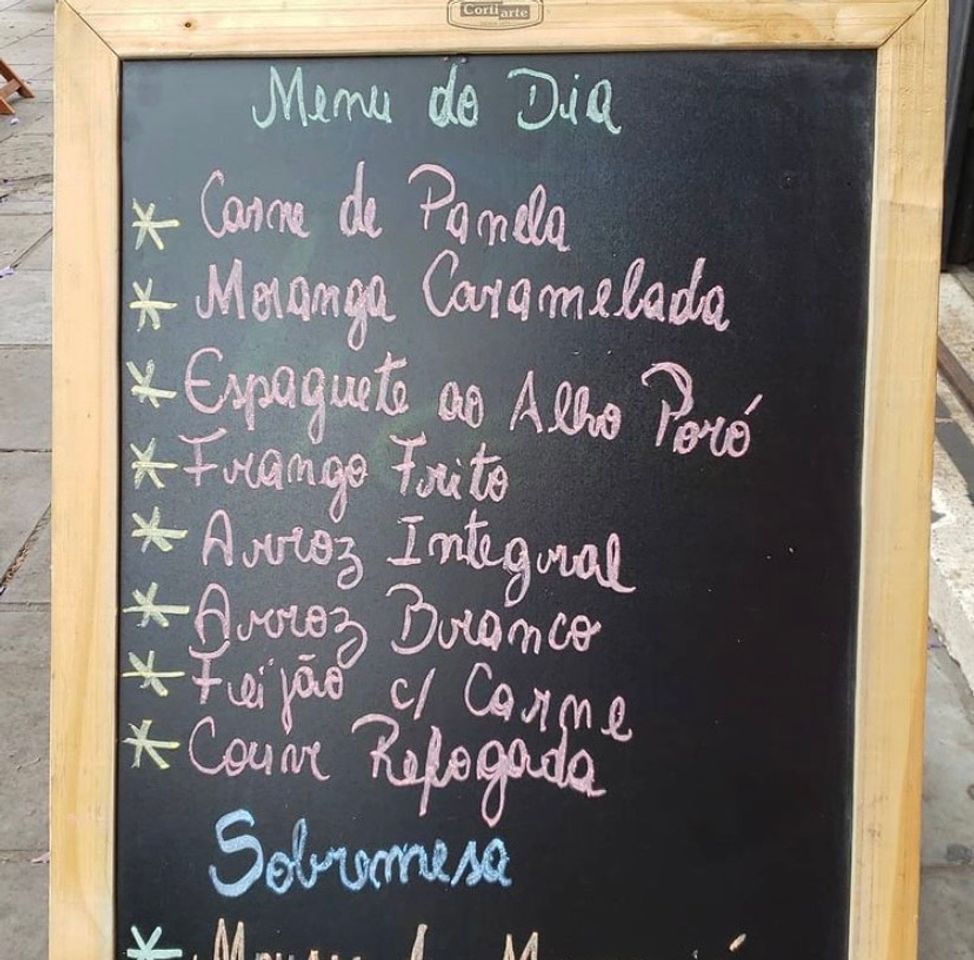 Corti arte
Menu do Dia
* Carne de Panela
* Moranga Caramelada
* Espaguete ao Alho Poró
* Frango Frito
* Arroz Integral
* Arroz Branco
* Feijão c/ Carne
* Couve Refogada
Sobremesa